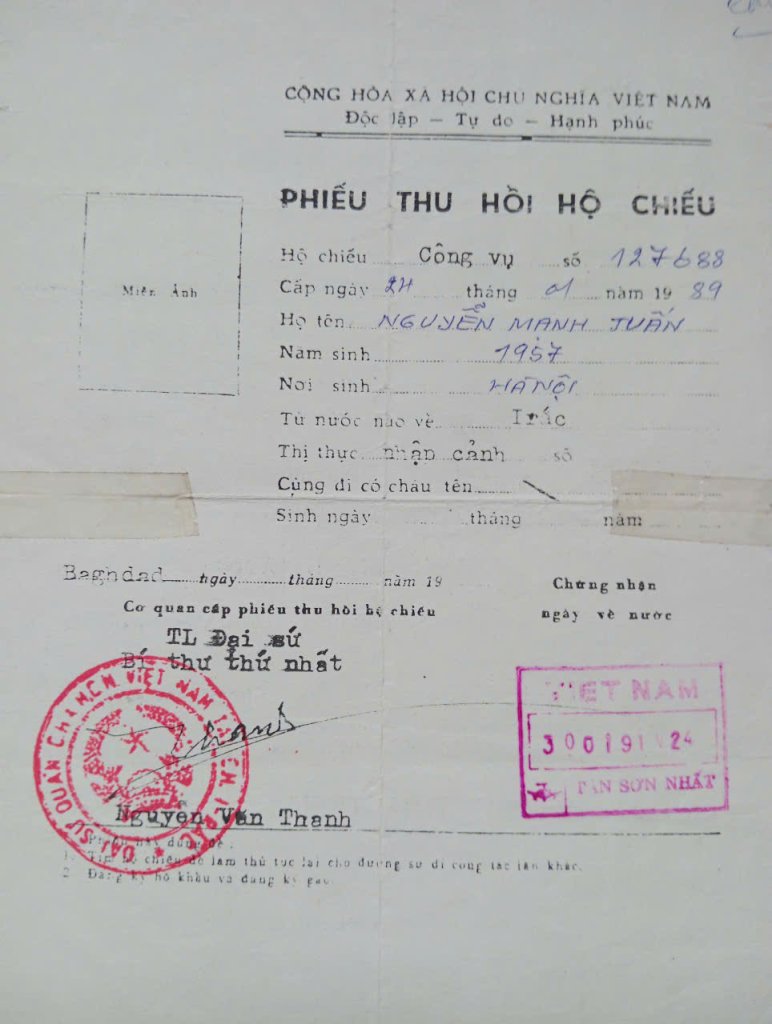 CỘNG HÒA XÃ HỘI CHU NGHĨA VIỆT NAM
Độc lập — Tự do — Hạnh phúc
PHIẾU THU HỒI HỘ CHIẾU
Miên Ảnh
Hộ chiếu Công vụ số 127688
Cấp ngày 24 tháng 01 năm 19 89
Họ tên NGUYỄN MẠNH TUẤN
Năm sinh 1957
Nơi sinh HÀ NỘI
Từ nước nào về Irắc
Thị thực nhập cảnh số
Cùng đi có cháu tên
Sinh ngày tháng năm
Baghdad ngày tháng năm 19
Cơ quan cấp phiếu thu hồi hộ chiếu
TL Đại sứ
Bí thư thứ nhất
Chứng nhận
ngày về nước
ĐẠI SỨ QUÁN CHXHCN VIỆT NAM TẠI
VIET NAM
300191 24
TÂN SƠN NHẤT
Nguyễn Văn Thanh
Phiếu này dùng để:
1. hộ chiếu để làm thủ tục lại cho đương sự đi công tác lần khác.
2. Đăng ký hộ khẩu và đăng ký gạo